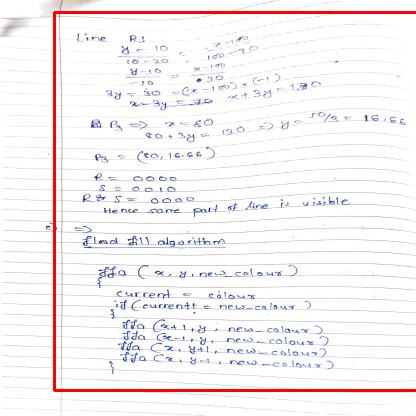 Line RS
y - 10 / 10 - 20 = x - 100 / 100 - 70
y - 10 / -10 = x - 100 / 30
3y = 30 = (x - 100) × (-1)
x - 3y = 70 x + 3y = 130
P3 => x = 80
80 + 3y = 130 => y = 50/3 = 16.66
P3 = (80, 16.66)
R = 0000
S = 0010
R & S = 0000
Hence some part of line is visible
e) =>
flood fill algorithm
ffa (x, y, new_colour)
{
current = colour
if (current != new_colour)
{
ffa (x+1, y, new_colour)
ffa (x-1, y, new_colour)
ffa (x, y+1, new_colour)
ffa (x, y-1, new_colour)
}